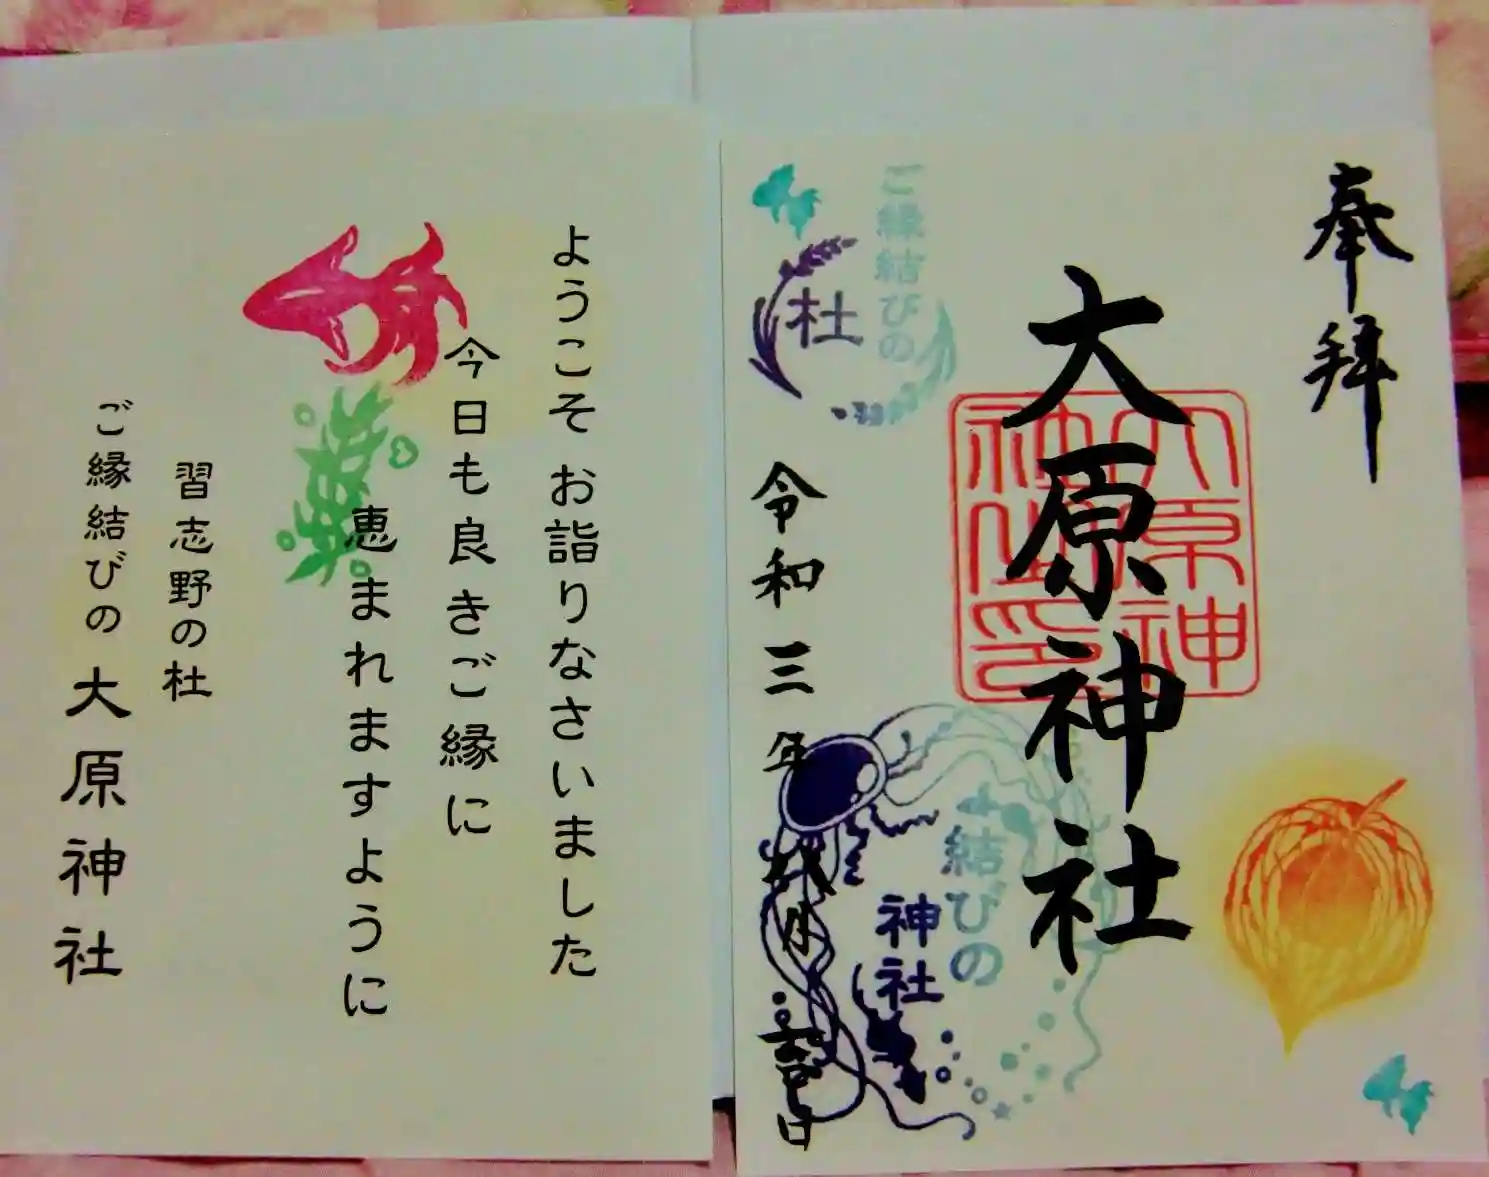 奉拝
大原神社
大原神社之印
ご縁結びの
杜
結びの
神社
令和三年 月 日
ようこそ お詣りなさいました
今日も良きご縁に
恵まれますように
習志野の杜
ご縁結びの 大原神社